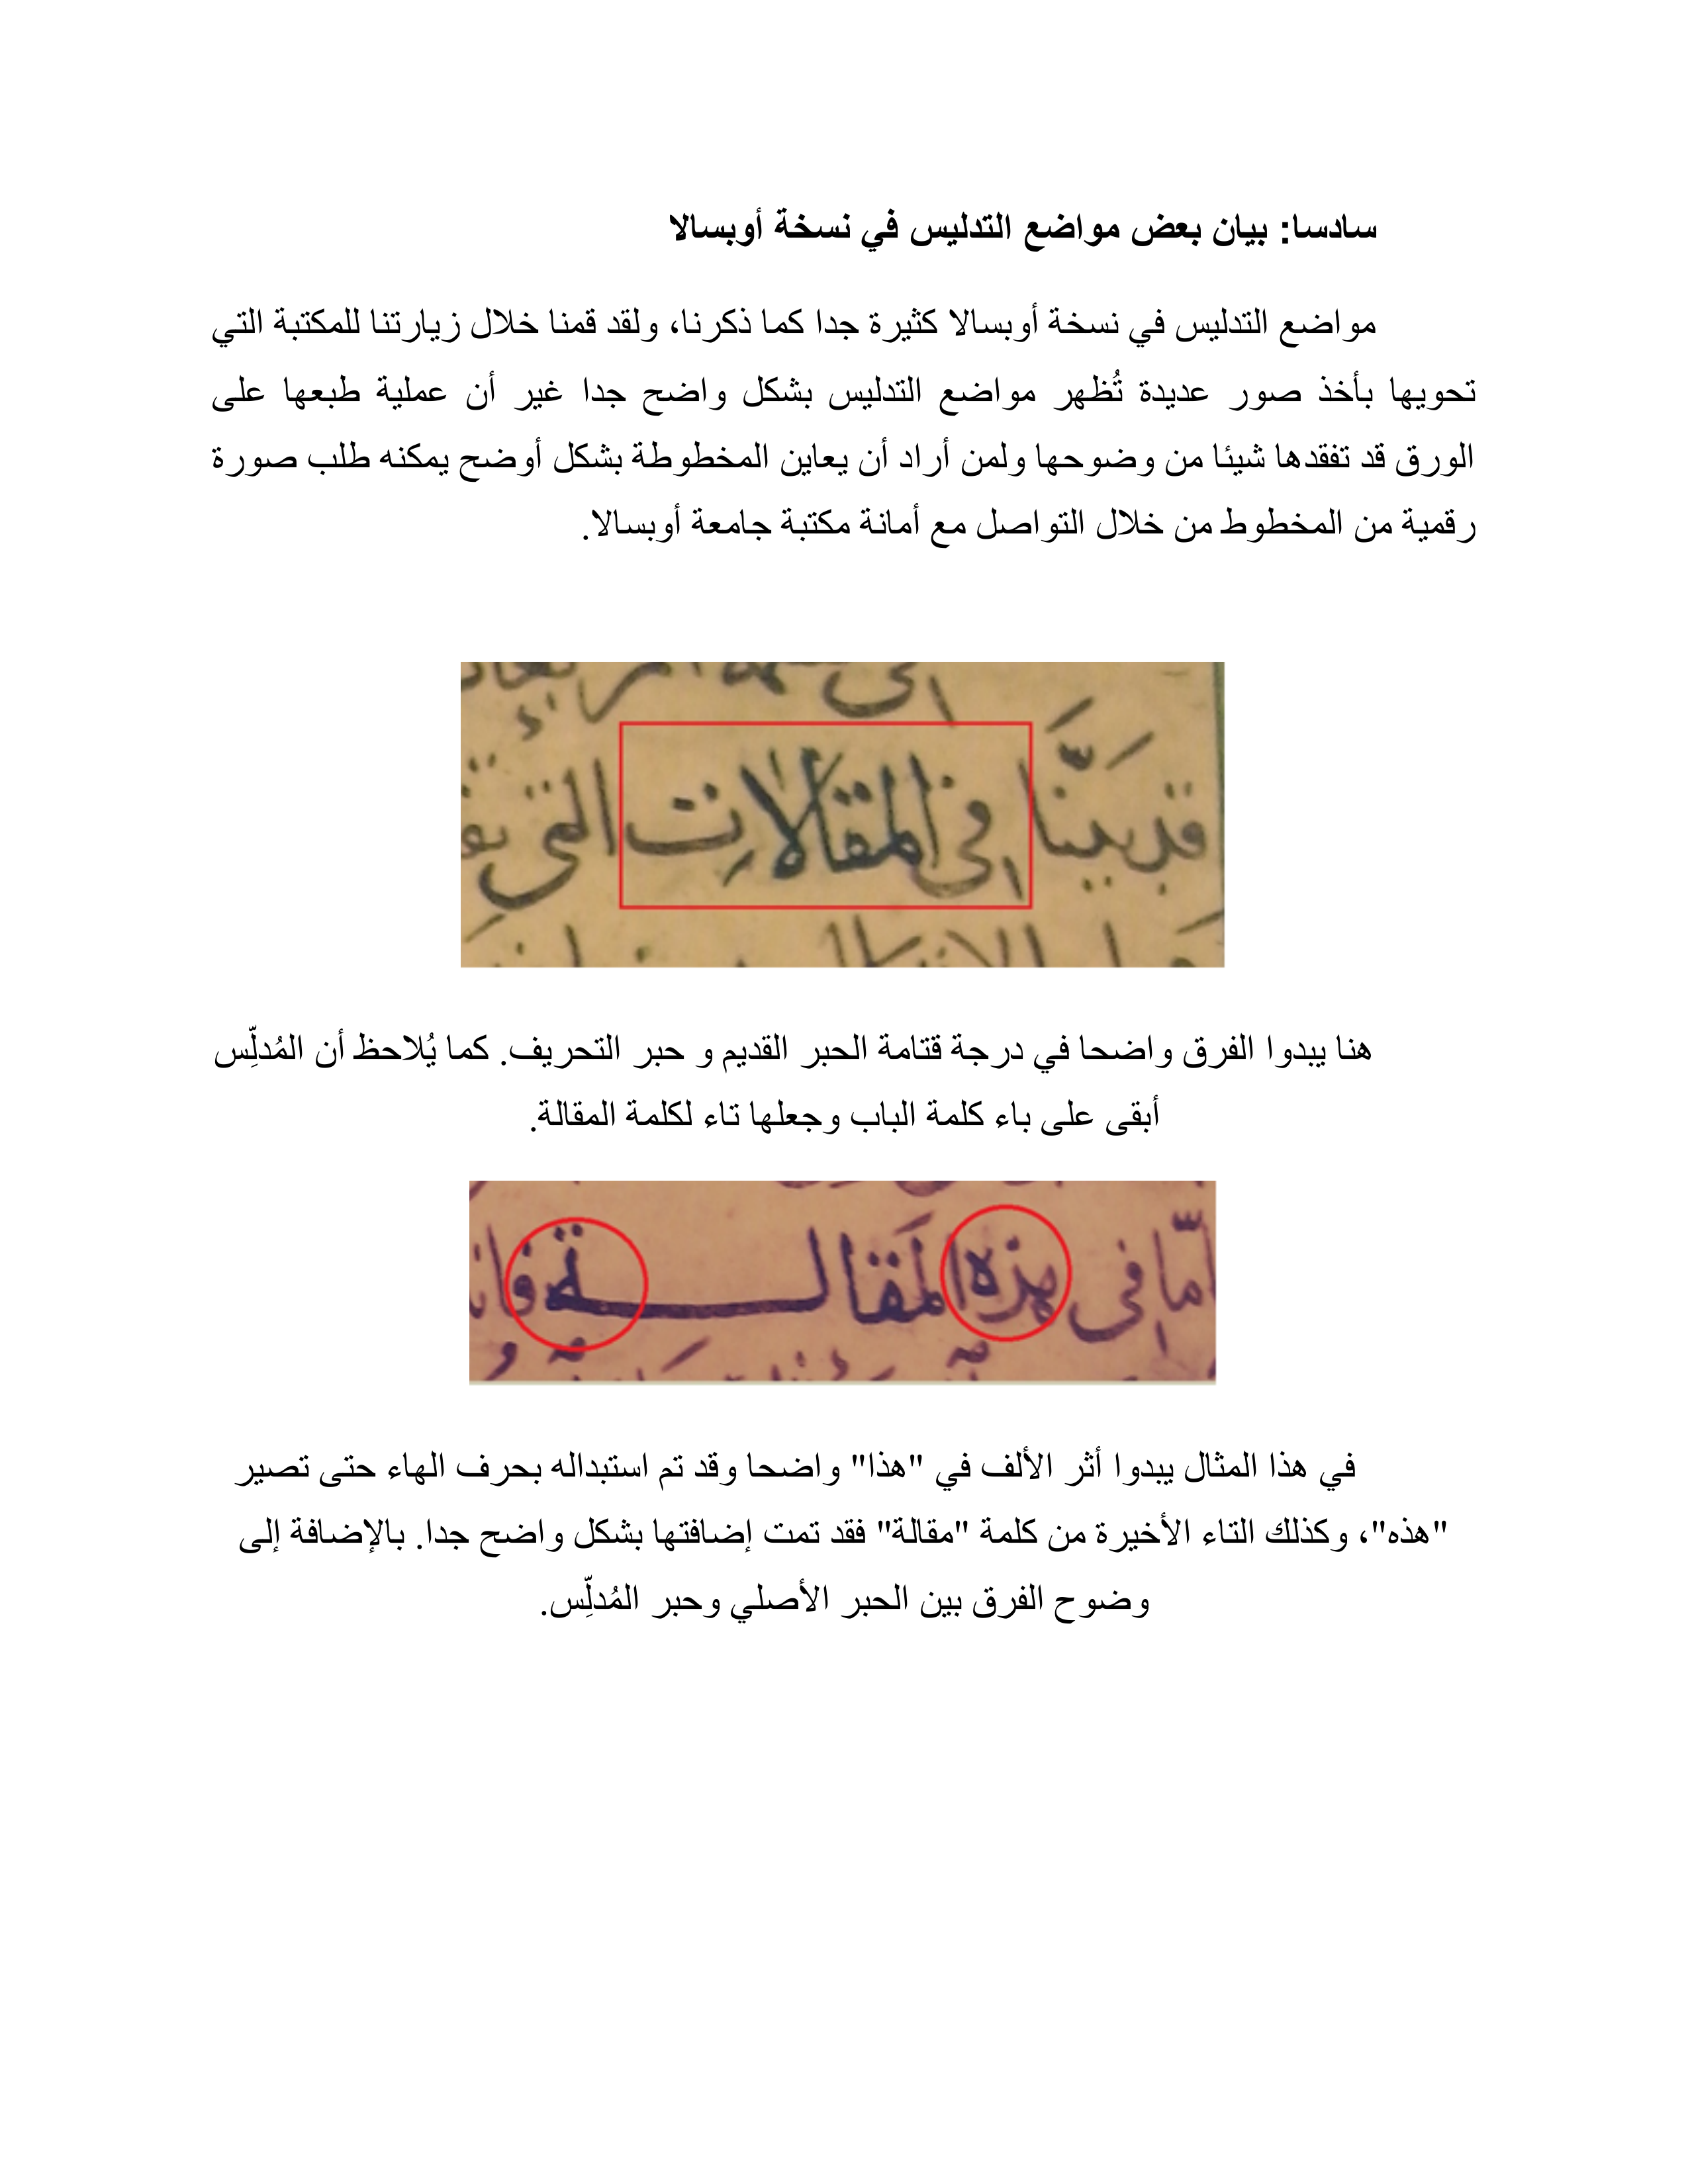 سادسا: بيان بعض مواضع التدليس في نسخة أوبسالا
مواضع التدليس في نسخة أوبسالا كثيرة جدا كما ذكرنا، ولقد قمنا خلال زيارتنا للمكتبة التي
تحويها بأخذ صور عديدة تُظهر مواضع التدليس بشكل واضح جدا غير أن عملية طبعها على
الورق قد تفقدها شيئا من وضوحها ولمن أراد أن يعاين المخطوطة بشكل أوضح يمكنه طلب صورة
رقمية من المخطوط من خلال التواصل مع أمانة مكتبة جامعة أوبسالا.
قد بينَّا فِى المقالاتِ التى
هنا يبدوا الفرق واضحا في درجة قتامة الحبر القديم و حبر التحريف. كما يُلاحظ أن المُدلِّس
أبقى على باء كلمة الباب وجعلها تاء لكلمة المقالة.
امّا فى هذه المقَالة
في هذا المثال يبدوا أثر الألف في "هذا" واضحا وقد تم استبداله بحرف الهاء حتى تصير
"هذه"، وكذلك التاء الأخيرة من كلمة "مقالة" فقد تمت إضافتها بشكل واضح جدا. بالإضافة إلى
وضوح الفرق بين الحبر الأصلي وحبر المُدلِّس.